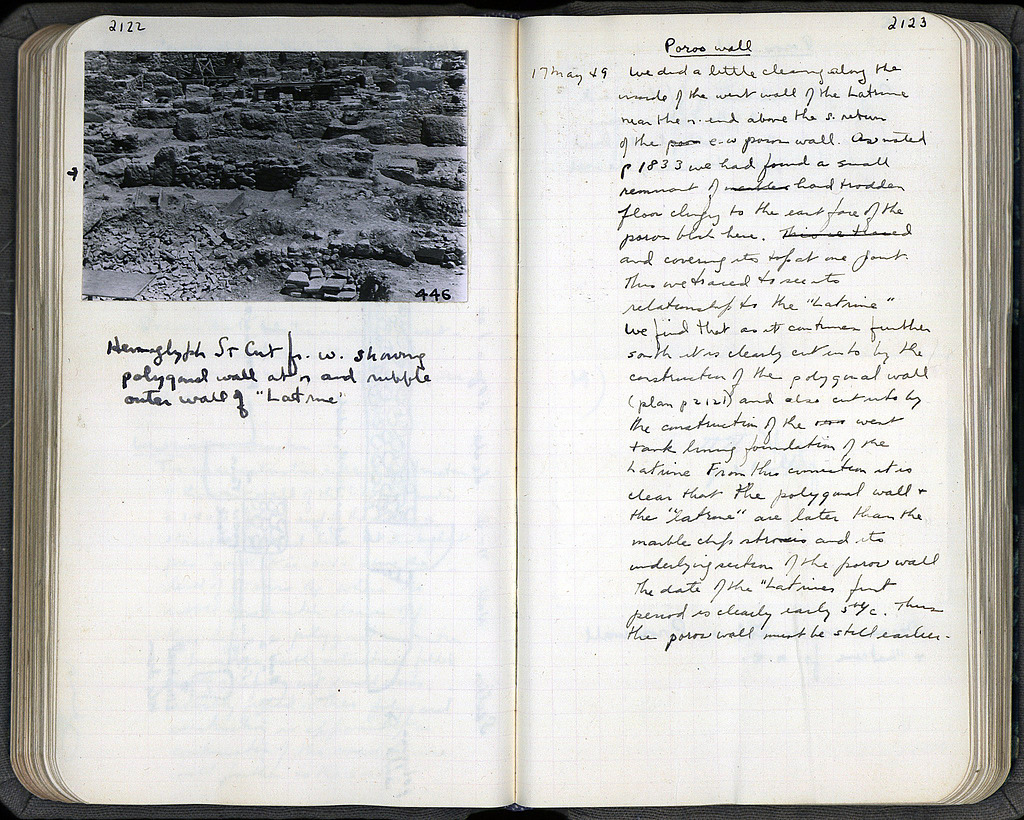 2122
446
Hermoglyph St Cut fr. w. showing
polygonal wall at n and rubble
outer wall of "Latrine"
2123
Poros wall
17 May 49 We did a little cleaning along the
inside of the west wall of the Latrine
near the n. end above the s. return
of the poros e-w poros wall. As noted
p 1833 we had found a small
remnant of hard trodden
floor clinging to the east face of the
poros block here. This we traced
and covering its top at one point.
This we traced to see its
relationship to the "Latrine"
We find that as it continues further
south it is clearly cut into by the
construction of the polygonal wall
(plan p 2121) and also cut into by
the construction of the west
tank lining foundation of the
Latrine From this connection it is
clear that the polygonal wall +
the "Latrine" are later than the
marble chip stratum and its
underlying section of the poros wall
The date of the "Latrines first
period is clearly early 5th c. Thus
the poros wall must be still earlier.